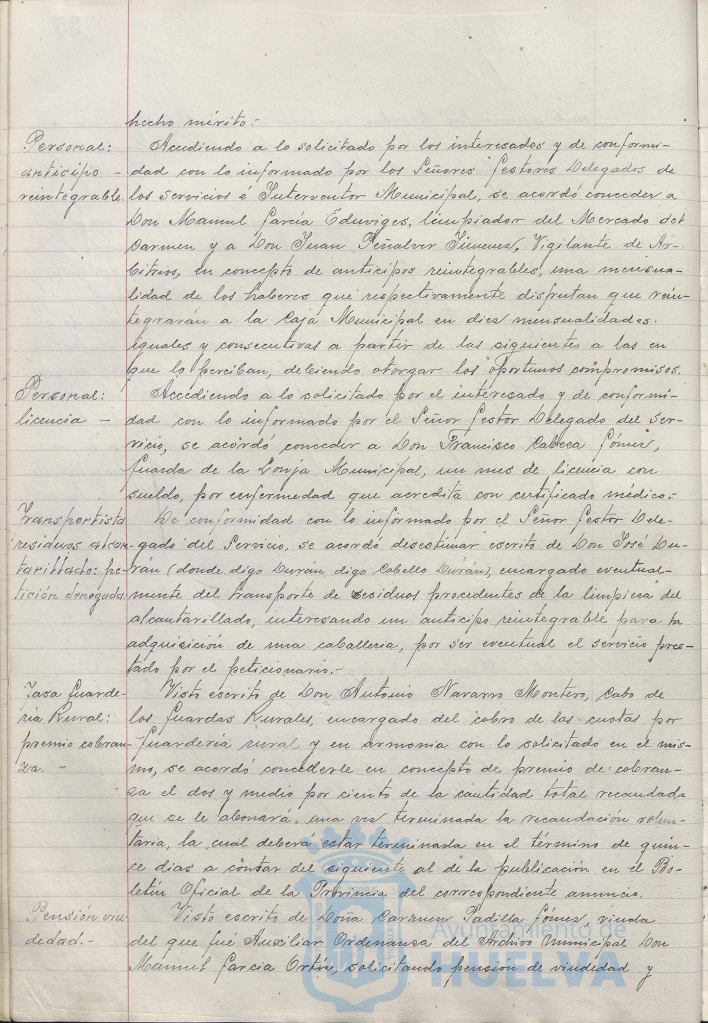 hecho mérito.-
Personal:
anticipo -
reintegrable.
Accediendo a lo solicitado por los interesados y de conformi-
dad con lo informado por los Señores Gestores Delegados de
los servicios é Interventor Municipal, se acordó conceder a
Don Manuel García Eduviges, limpiador del Mercado del
Carmen y a Don Juan Peñalver Jimenez, Vigilante de Ar-
bitrios, en concepto de anticipos reintegrables, una mensua-
lidad de los haberes que respectivamente disfrutan que rein-
tegrarán a la Caja Municipal en diez mensualidades.
iguales y consecutivas a partir de las siguientes a las en
que lo perciban, debiendo otorgar los oportunos compromisos.
Personal:
licencia -
Accediendo a lo solicitado por el interesado y de conformi-
dad con lo informado por el Señor Gestor Delegado del Ser-
vicio, se acordó conceder a Don Francisco Cabeza Gómez,
Guarda de la Lonja Municipal, un mes de licencia con
sueldo, por enfermedad que acredita con certificado médico.-
Transportista
residuos alcan-
tarillado: pe-
tición denegada
De conformidad con lo informado por el Señor Gestor Dele-
gado del Servicio, se acordó desestimar escrito de Don José Du-
rán (donde digo Durán, digo Cabello Durán), encargado eventual-
mente del transporte de residuos procedentes de la limpieza del
alcantarillado, interesando un anticipo reintegrable para la
adquisición de una caballeria, por ser eventual el servicio pres-
tado por el peticionario.-
Tasa Guarde-
ria Rural:
premio cobran-
za. -
Visto escrito de Don Antonio Navarro Montero, Cabo de
los Guardas Rurales, encargado del cobro de las cuotas por
Guardería rural y en armonia con lo solicitado en el mis-
mo, se acordó concederle en concepto de premio de cobran-
za el dos y medio por ciento de la cantidad total recaudada
que se le abonará una vez terminada la recaudación volun-
taria, la cual deberá estar terminada en el término de quin-
ce dias a contar del siguiente al de la publicación en el Bo-
letín Oficial de la Provincia del correspondiente anuncio.
Pensión viu-
dedad.-
Visto escrito de Doña Carmen Padilla Gómez, viuda
del que fué Auxiliar Ordenanza del Archivo Municipal Don
Manuel García Ortiz, solicitando pensión de viudedad y
Ayuntamiento de
HUELVA